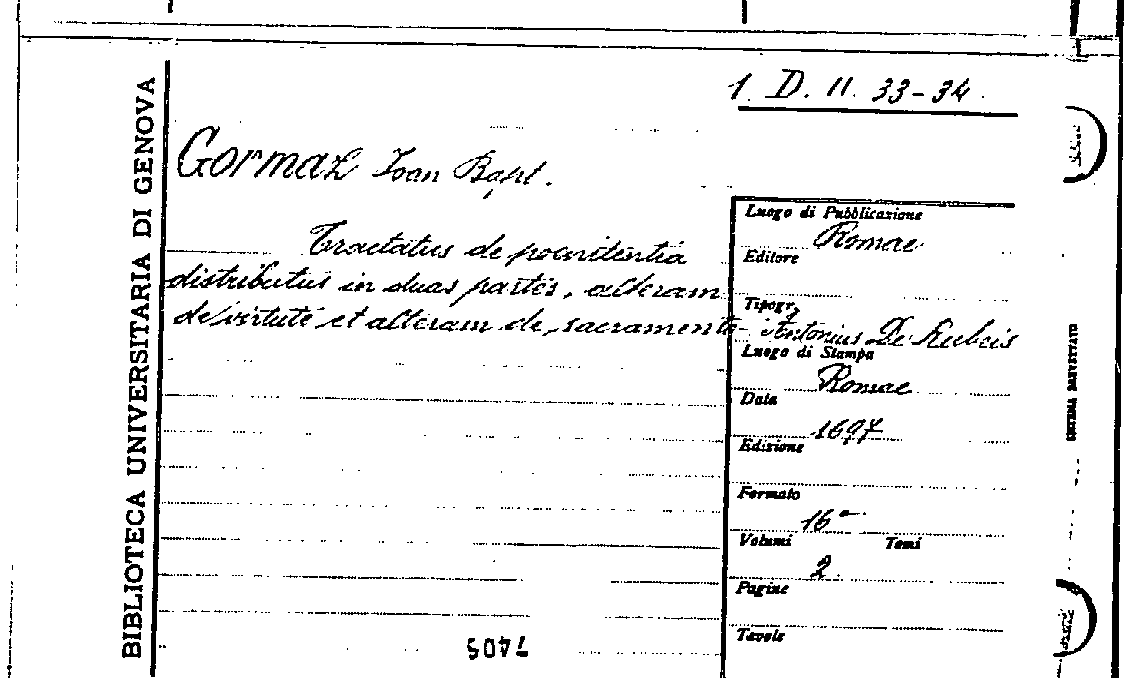 1. D. II. 33-34.
BIBLIOTECA UNIVERSITARIA DI GENOVA
Gormaz Ioan Bapt.
Tractatus de poenitentia
distributus in duas partes, alteram
de virtute et alteram de sacramento
Luogo di Pubblicazione
Romae
Editore
Tipogr.
Antonius De Rubeis
Luogo di Stampa
Romae
Data
1697
Edizione
Formato
16°
Volumi Tomi
2
Pagine
Tavole
7405